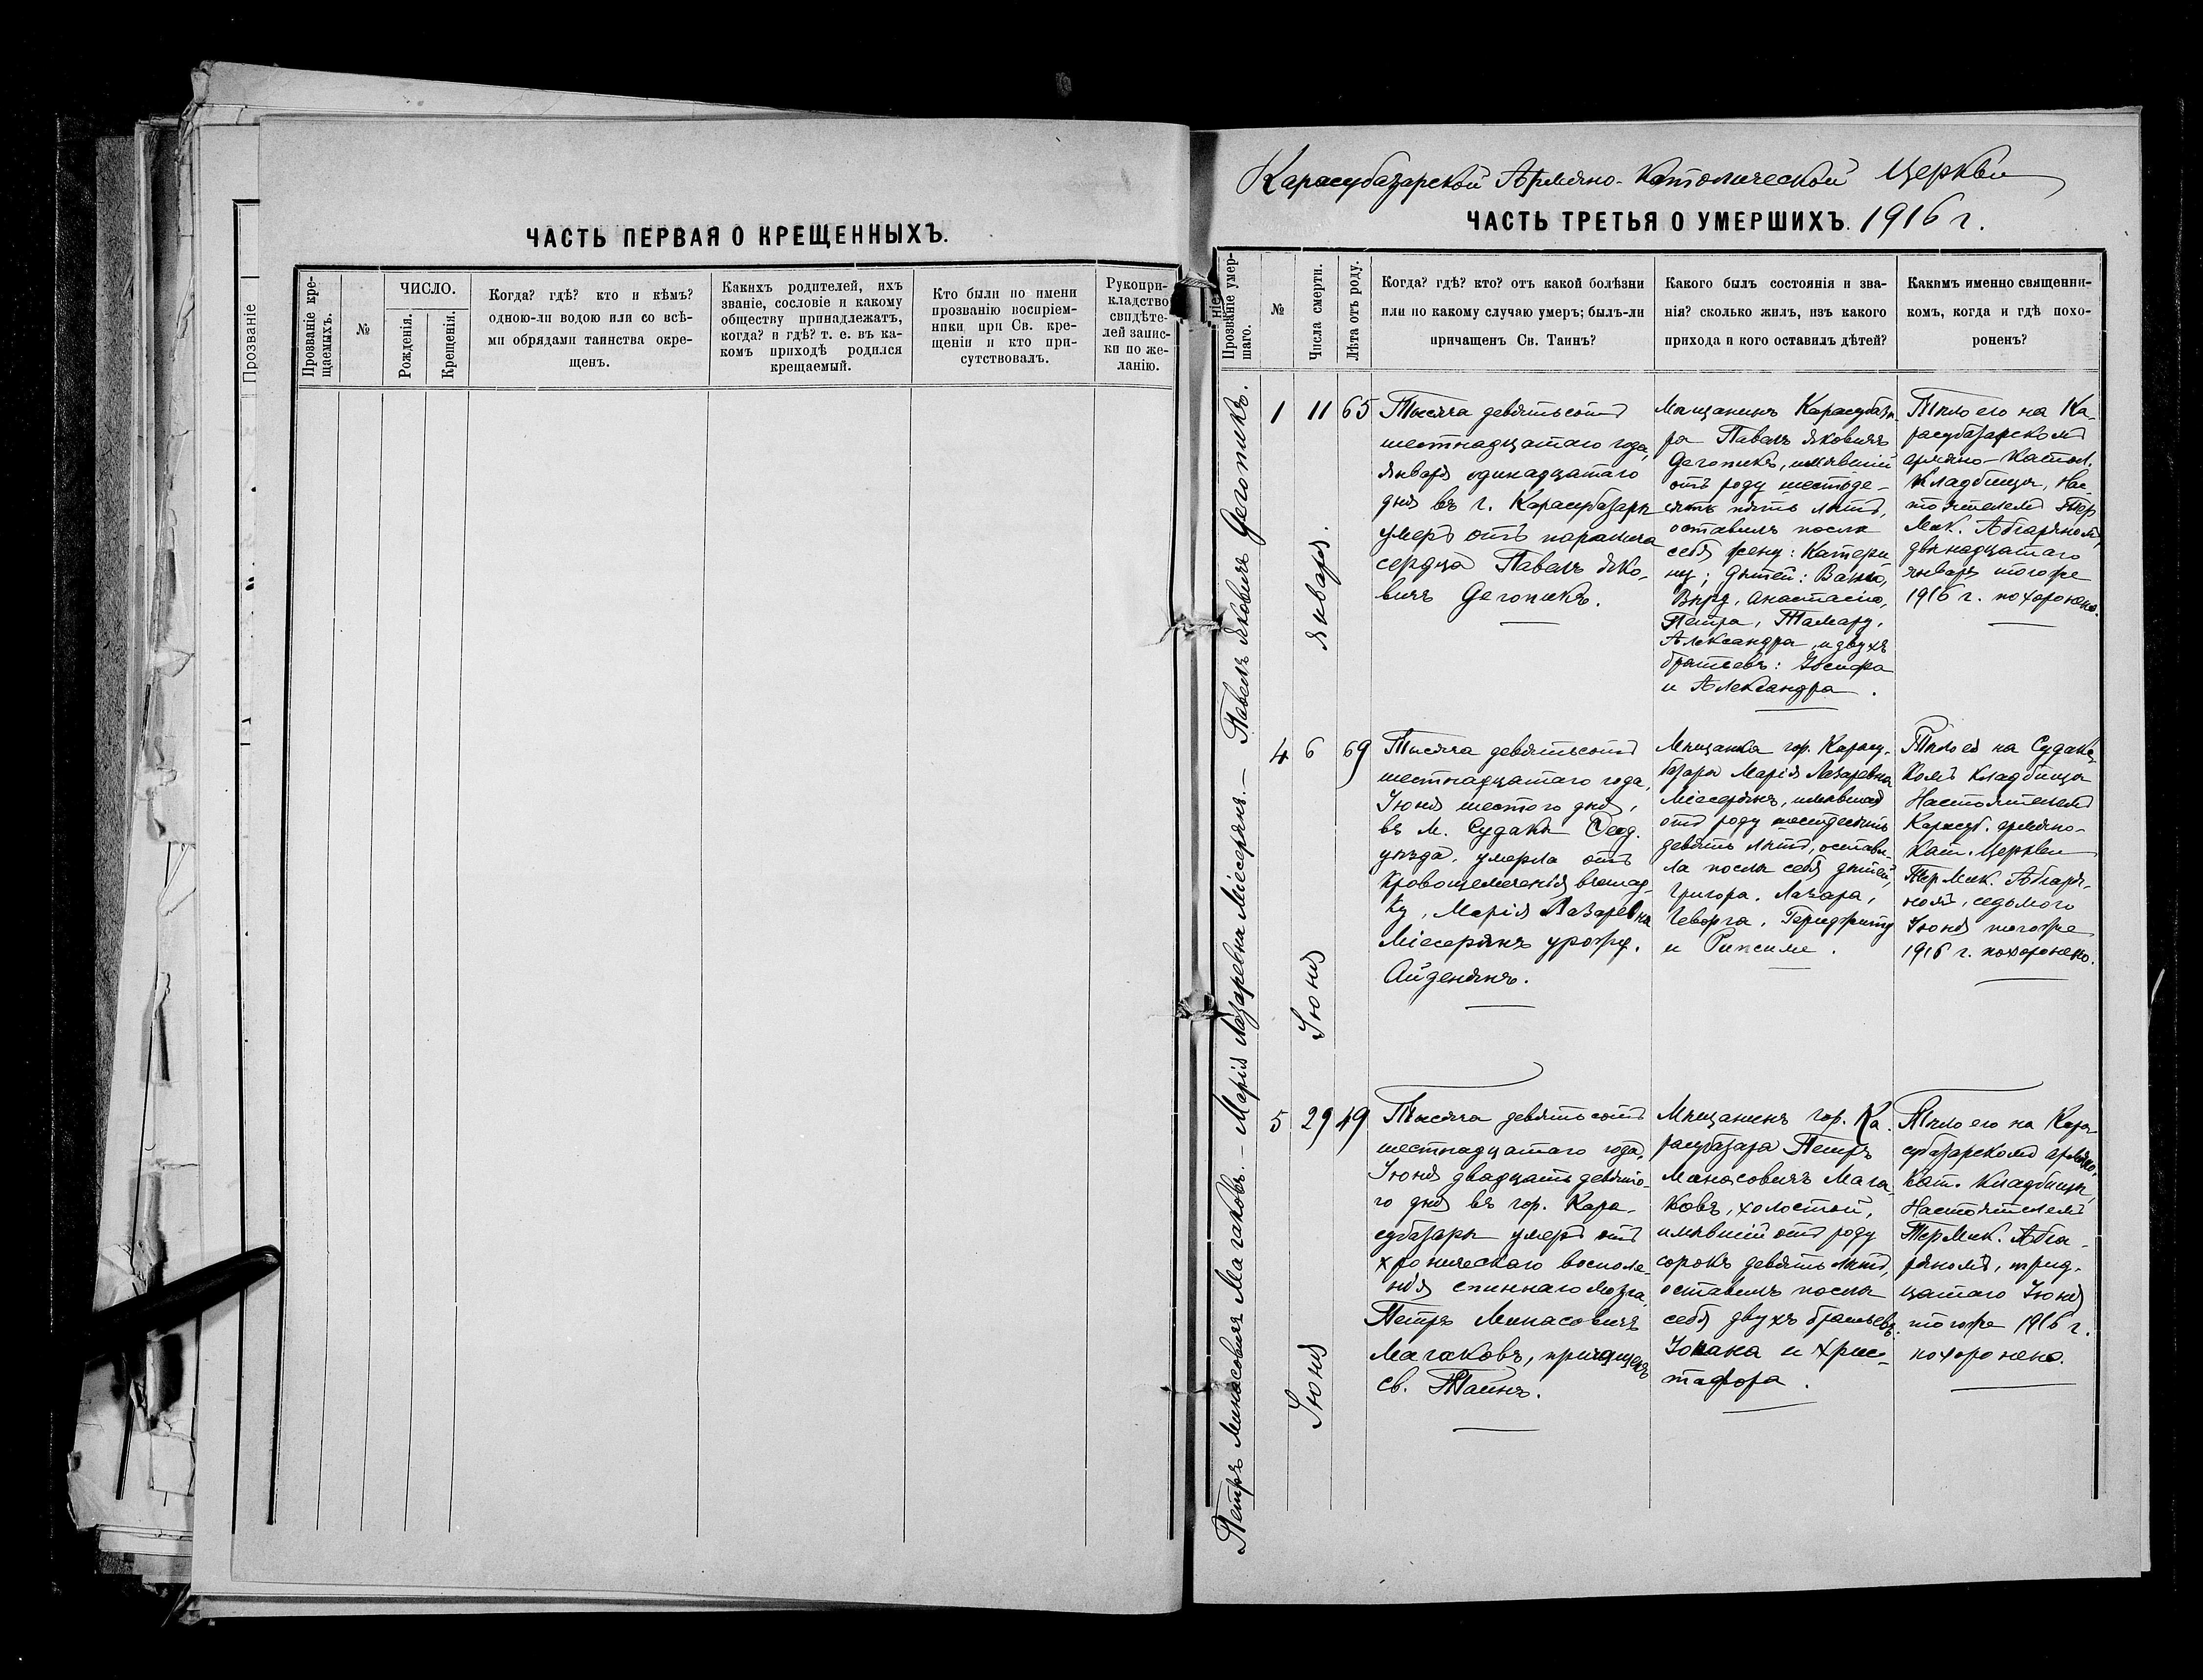 Прозваніе
ЧАСТЬ ПЕРВАЯ О КРЕЩЕННЫХЪ.
Прозваніе кре-
щаемыхъ.
№
ЧИСЛО.
Рожденія.
Крещенія.
Когда? гдѣ? кто и кѣмъ?
одною-ли водою или со всѣ-
ми обрядами таинства окре-
щенъ.
Какихъ родителей, ихъ
званіе, сословіе и какому
обществу принадлежатъ,
когда? и гдѣ? т. е. въ ка-
комъ приходѣ родился
крещаемый.
Кто были по имени
прозванію воспріем-
ники при Св. кре-
щеніи и кто при-
сутствовалъ.
Рукопри-
кладство
свидѣте-
лей запис-
ки по же-
ланію.
Карасубазарской Армяно-Католической Церкви
ЧАСТЬ ТРЕТЬЯ О УМЕРШИХЪ. 1916 г.
Прозваніе умер-
шаго.
№
Числа смерти.
Лѣта отъ роду.
Когда? гдѣ? кто? отъ какой болѣзни
или по какому случаю умеръ; былъ-ли
причащенъ Св. Таинъ?
Какого былъ состоянія и зва-
нія? сколько жилъ, изъ какого
прихода и кого оставилъ дѣтей?
Какимъ именно священни-
комъ, когда и гдѣ похо-
роненъ?
Павелъ Яковичъ Дегопикъ.
1
11
Января.
65
Тысяча девятьсотъ
шестнадцатаго года,
Января одинадцатаго
дня въ г. Карасубазарѣ
умеръ отъ паралича
сердца Павелъ Яко-
вичъ Дегопикъ.
Мѣщанинъ Карасубаза-
ра Павелъ Яковичъ
Дегопикъ, имѣвшій
отъ роду шестьде-
сятъ пять лѣтъ,
оставилъ послѣ
себя жену: Катери
ну; дѣтей: Ваню,
Вѣру, Анастасію,
Петра, Тамару,
Александра и двухъ
братьевъ: Іосифа
и Александра.
Тѣло его на Ка-
расубазарскомъ
армяно-катол.
кладбищѣ, Нас-
тоятелемъ Тер
Мик. Абгаряномъ,
двѣнадцатаго
января тогоже
1916 г. похоронено.
Марія Лазаревна Місерянъ. —
4
6
Іюня
69
Тысяча девятьсотъ
шестнадцатаго года,
Іюня шестого дня,
въ м. Судакѣ Ѳеод.
уѣзда, умерла отъ
Марія Лазаревна
Місерянъ урожд.
Айденянъ.
Мѣщанка гор. Карасу-
базара Марія Лазаревна
Місерянъ, имѣвшая
отъ роду шестьдесятъ
девять лѣтъ, остави-
ла послѣ себя дѣтей,
Григора, Лазара,
Геворга,
и Рипсиме.
Тѣло ея на Судакс-
комъ кладбищѣ
Настоятелемъ
Карасуб. армяно-
Кат. Церкви
Тер Мик. Абгаря-
номъ, седьмого
Іюня тогоже
1916 г. похоронено.
Петръ Минасовичъ Магаковъ. —
5
29
Іюня
49
Тысяча девятьсотъ
шестнадцатаго года,
Іюня двадцать девято-
го дня въ гор. Кара-
субазарѣ умеръ отъ
хроническаго воспале-
нія спиннаго мозга,
Петръ Минасовичъ
Магаковъ, причащенъ
св. Таинъ.
Мѣщанинъ гор. Ка-
расубазара Петръ
Минасовичъ Мага-
ковъ, холостой,
имѣвшій отъ роду
сорокъ девять лѣтъ,
оставилъ послѣ
себя двухъ братьевъ:
Іоана и Хрис-
тафора.
Тѣло его на Кара-
субазарскомъ армяно-
Кат. кладбищѣ,
Настоятелемъ
Тер Мик. Абга-
ряномъ, трид-
цатаго Іюня
тогоже 1916 г.
похоронено.